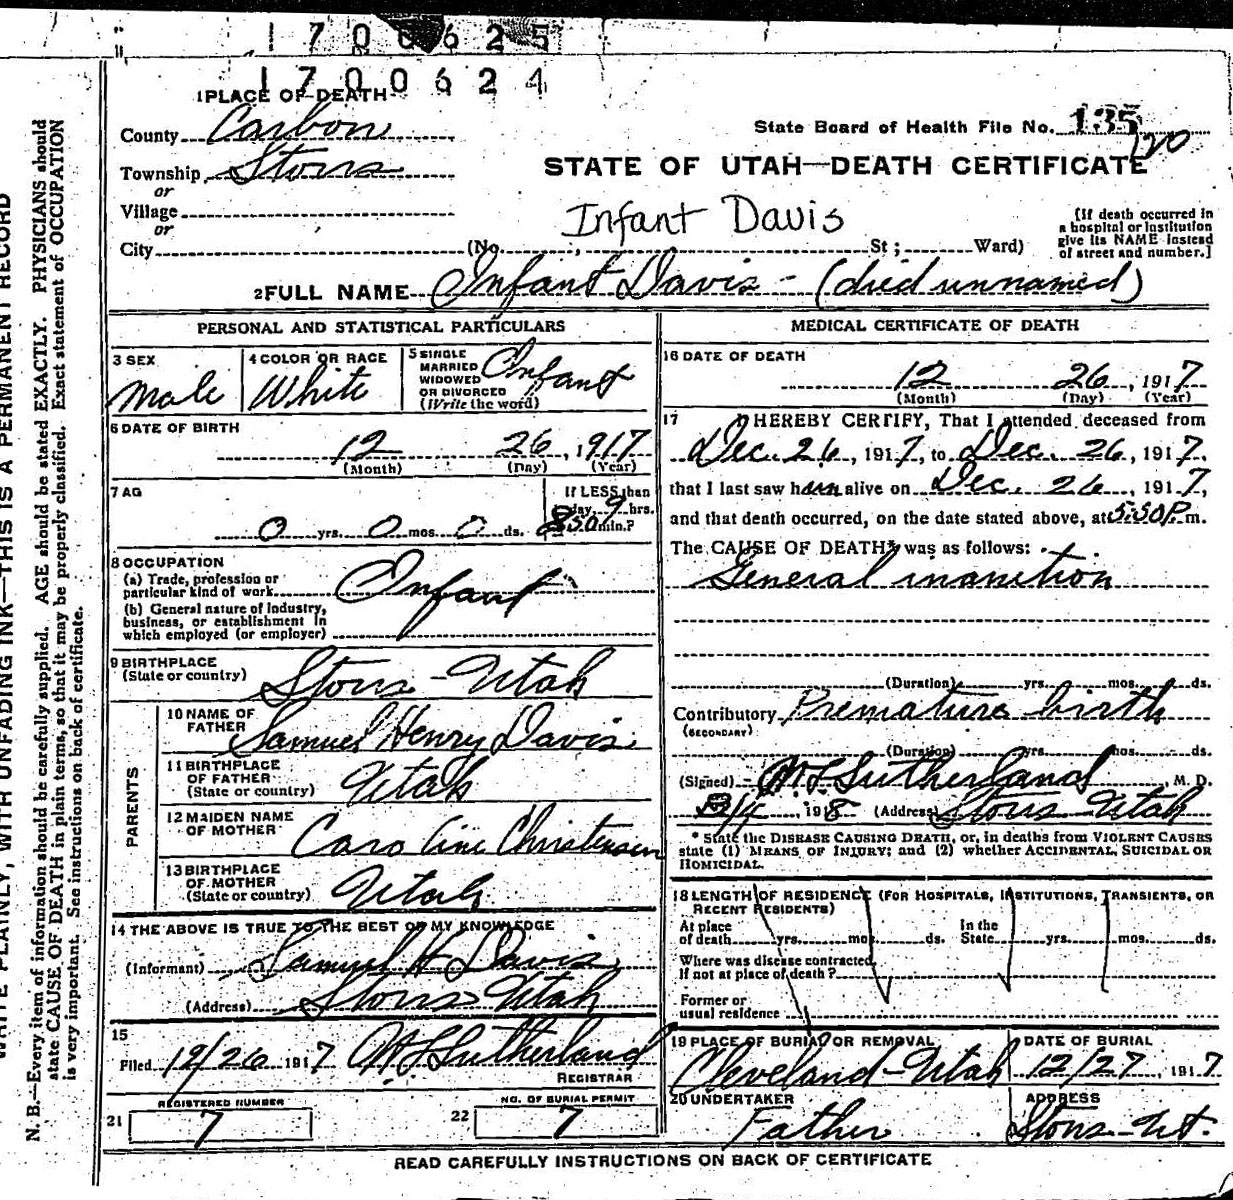 1 7 0 0 6 2 5
1 7 0 0 6 2 4
1 PLACE OF DEATH
County Carbon
State Board of Health File No. 135
120
Township Storrs
STATE OF UTAH—DEATH CERTIFICATE
or
Village
or
Infant Davis
City (No. , St ; Ward)
[If death occurred in
a hospital or institution
give its NAME instead
of street and number.]
2 FULL NAME Infant Davis - (died unnamed)
PERSONAL AND STATISTICAL PARTICULARS
3 SEX
Male
4 COLOR OR RACE
White
5 SINGLE
MARRIED
WIDOWED
OR DIVORCED
(Write the word)
Infant
6 DATE OF BIRTH
12 26, 1917
(Month) (Day) (Year)
7 AG
If LESS than
day, 9 hrs.
0 yrs. 0 mos. 0 ds. 50 min.?
8 OCCUPATION
(a) Trade, profession or
particular kind of work
Infant
(b) General nature of industry,
business, or establishment in
which employed (or employer)
9 BIRTHPLACE
(State or country)
Storrs - Utah
PARENTS
10 NAME OF
FATHER
Samuel Henry Davis
11 BIRTHPLACE
OF FATHER
(State or country)
Utah
12 MAIDEN NAME
OF MOTHER
Caroline Christensen
13 BIRTHPLACE
OF MOTHER
(State or country)
Utah
14 THE ABOVE IS TRUE TO THE BEST OF MY KNOWLEDGE
(Informant) Samuel H Davis
(Address) Storrs Utah
15
Filed 12/26 1917 Sutherland
REGISTRAR
REGISTERED NUMBER
21 7
NO. OF BURIAL PERMIT
22 7
MEDICAL CERTIFICATE OF DEATH
16 DATE OF DEATH
12 26, 1917
(Month) (Day) (Year)
17 I HEREBY CERTIFY, That I attended deceased from
Dec. 26, 1917, to Dec. 26, 1917,
that I last saw him alive on Dec. 26, 1917,
and that death occurred, on the date stated above, at 5:50 P.m.
The CAUSE OF DEATH* was as follows:
General inanition
(Duration) yrs. mos. ds.
Contributory Premature birth
(SECONDARY)
(Duration) yrs. mos. ds.
(Signed) Sutherland M. D.
1918 (Address) Storrs Utah
* State the DISEASE CAUSING DEATH, or, in deaths from VIOLENT CAUSES
state (1) MEANS OF INJURY; and (2) whether ACCIDENTAL, SUICIDAL OR
HOMICIDAL.
18 LENGTH OF RESIDENCE (FOR HOSPITALS, INSTITUTIONS, TRANSIENTS, OR
RECENT RESIDENTS)
At place
of death yrs. mos. ds.
In the
State yrs. mos. ds.
Where was disease contracted
if not at place of death?
Former or
usual residence
19 PLACE OF BURIAL OR REMOVAL
Cleveland - Utah
DATE OF BURIAL
12/27, 1917
20 UNDERTAKER
Father
ADDRESS
Storrs - Ut.
READ CAREFULLY INSTRUCTIONS ON BACK OF CERTIFICATE
WRITE PLAINLY, WITH UNFADING INK—THIS IS A PERMANENT RECORD
N. B.—Every item of information should be carefully supplied. AGE should be stated EXACTLY. PHYSICIANS should
state CAUSE OF DEATH in plain terms, so that it may be properly classified. Exact statement of OCCUPATION
is very important. See instructions on back of certificate.